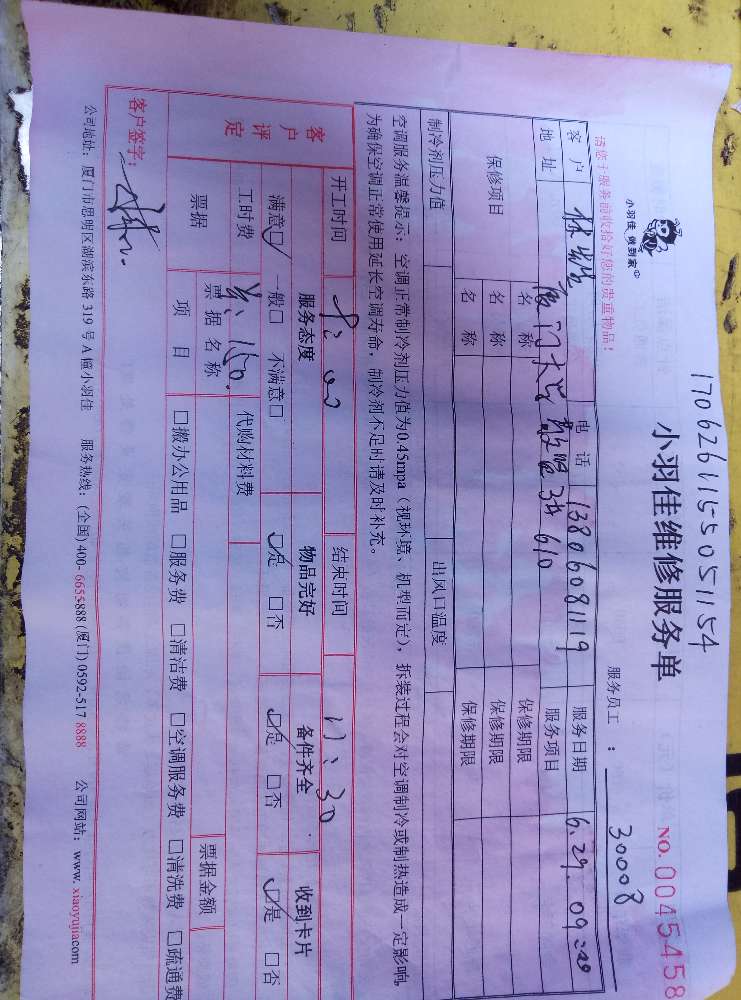 1706261155051154
小羽佳 做到家
小羽佳维修服务单
NO.0045458
请您于服务前收拾好您的贵重物品!
服务员工: 30008
客户 电话 13806081119 服务日期 6.29. 09:20
地址 厦门大学 3# 610 服务项目
保修项目 名称 保修期限
名称 保修期限
名称 保修期限
制冷剂压力值 出风口温度
空调服务温馨提示:空调正常制冷剂压力值为0.45mpa(视环境、机型而定),拆装过程会对空调制冷或制热造成一定影响。
为确保空调正常使用延长空调寿命,制冷剂不足时请及时补充。
开工时间 结束时间 11:30
客户评定 服务态度 物品完好 备件齐全 收到卡片
满意☑ 一般□ 不满意□ ☑是 □否 ☑是 □否 ☑是 □否
工时费 150. 代购材料费
票据 票据名称 票据金额
项目 □搬办公用品 □服务费 □清洁费 □空调服务费 □清洗费 □疏通费
客户签字:
公司地址:厦门市思明区湖滨东路 319 号 A 幢小羽佳 服务热线:(全国) 400-6655-888 (厦门) 0592-517 8888 公司网站:www.xiaoyujia.com